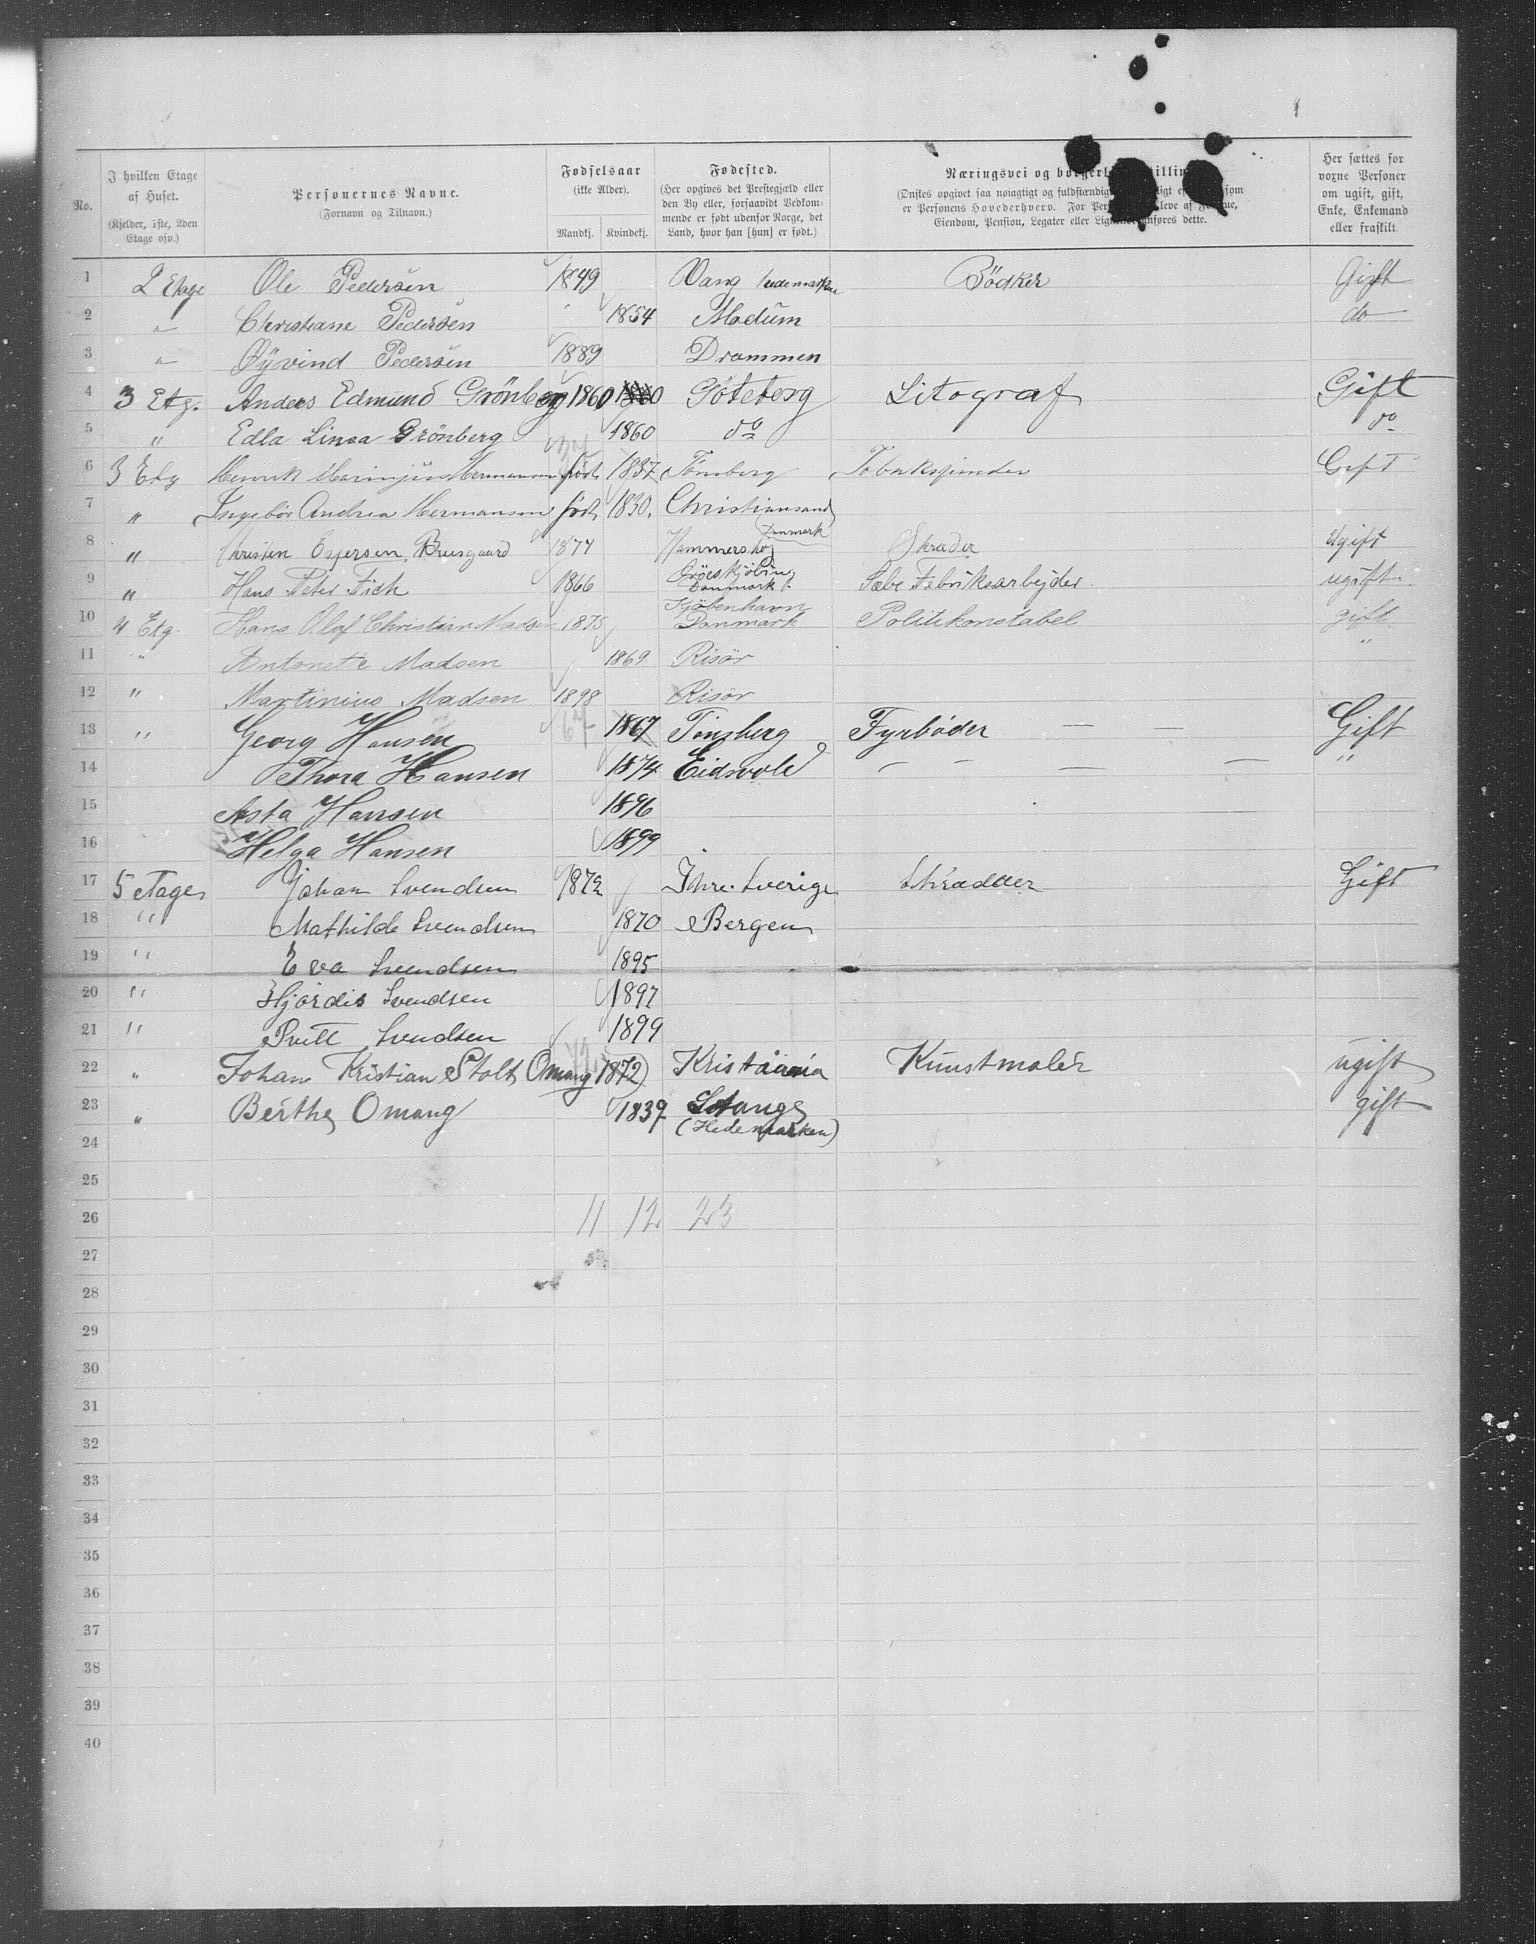 No.
I hvilken Etage af Huset.
(Kjelder, 1ste, 2den Etage osv.)
Personernes Navne.
(Fornavn og Tilnavn.)
Fødselsaar
(ikke Alder).
Mandkj. Kvindekj.
Fødested.
(Her opgives det Prestegjæld eller
den By eller, forsaavidt Vedkom-
mende er født udenfor Norge, det
Land, hvor han [hun] er født.)
Næringsvei og borgerl
(Ønskes opgivet saa nøiagtigt og fuldstændig
er Personens Hovederhverv. For
Eiendom, Pension, Legater eller anføres dette.
Her sættes for
voxne Personer
om ugift, gift,
Enke, Enkemand
eller fraskilt.
1 2 Etage Ole Pedersen 1849 Vang hedemarken Bödker Gift
2 " Christiane Pedersen 1854 Modum do
3 " Øyvind Pedersen 1889 Drammen
4 3 Etg. Anders Edmund Grönberg 1860 Göteborg Litograf Gift
5 " Edla Linea Grönberg 1860 do do
6 3 Etg Henrik Hermansen født 1837 Tønsberg Gift
7 " Andrea Hermansen født 1830. Christiansand
8 " Christen Espersen Bruusgaard 1877 Hammershøj Danmark Skræder ugift
9 " Hans Peter Fich 1866 Danmark Sæbe Fabriksarbejder ugift
10 4 Etg. Hans Olaf Christian Madsen 1875 Kjöbenhavn Danmark Politikonstabel gift
11 " Antonette Madsen 1869 Risör "
12 " Martinius Madsen 1898 Risör
13 " Georg Hansen 67 1867 Tønsberg Fyrböder — — Gift
14 Thora Hansen 1874 Eidsvold — — — — "
15 Asta Hansen 1896
16 Helga Hansen 1899
17 5 etage Johan Svendsen 1872 Sverige Skrædder Gift
18 " Mathilde Svendsen 1870 Bergen
19 " Eva Svendsen 1895
20 " Hjördis Svendsen 1897
21 " Svendsen 1899
22 " Johan Kristian Stolt Omang 72 1872) Kristiania Kunstmaler ugift
23 " Berthe Omang 1839 Stange (Hedemarken) gift
24
25
26 11 12 23
27
28
29
30
31
32
33
34
35
36
37
38
39
40